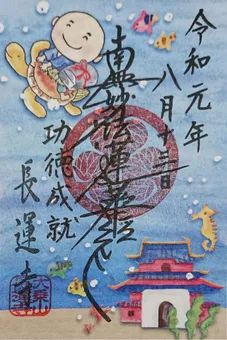 令和元年
八月十三日
南無妙法蓮華経
功徳成就
長運寺